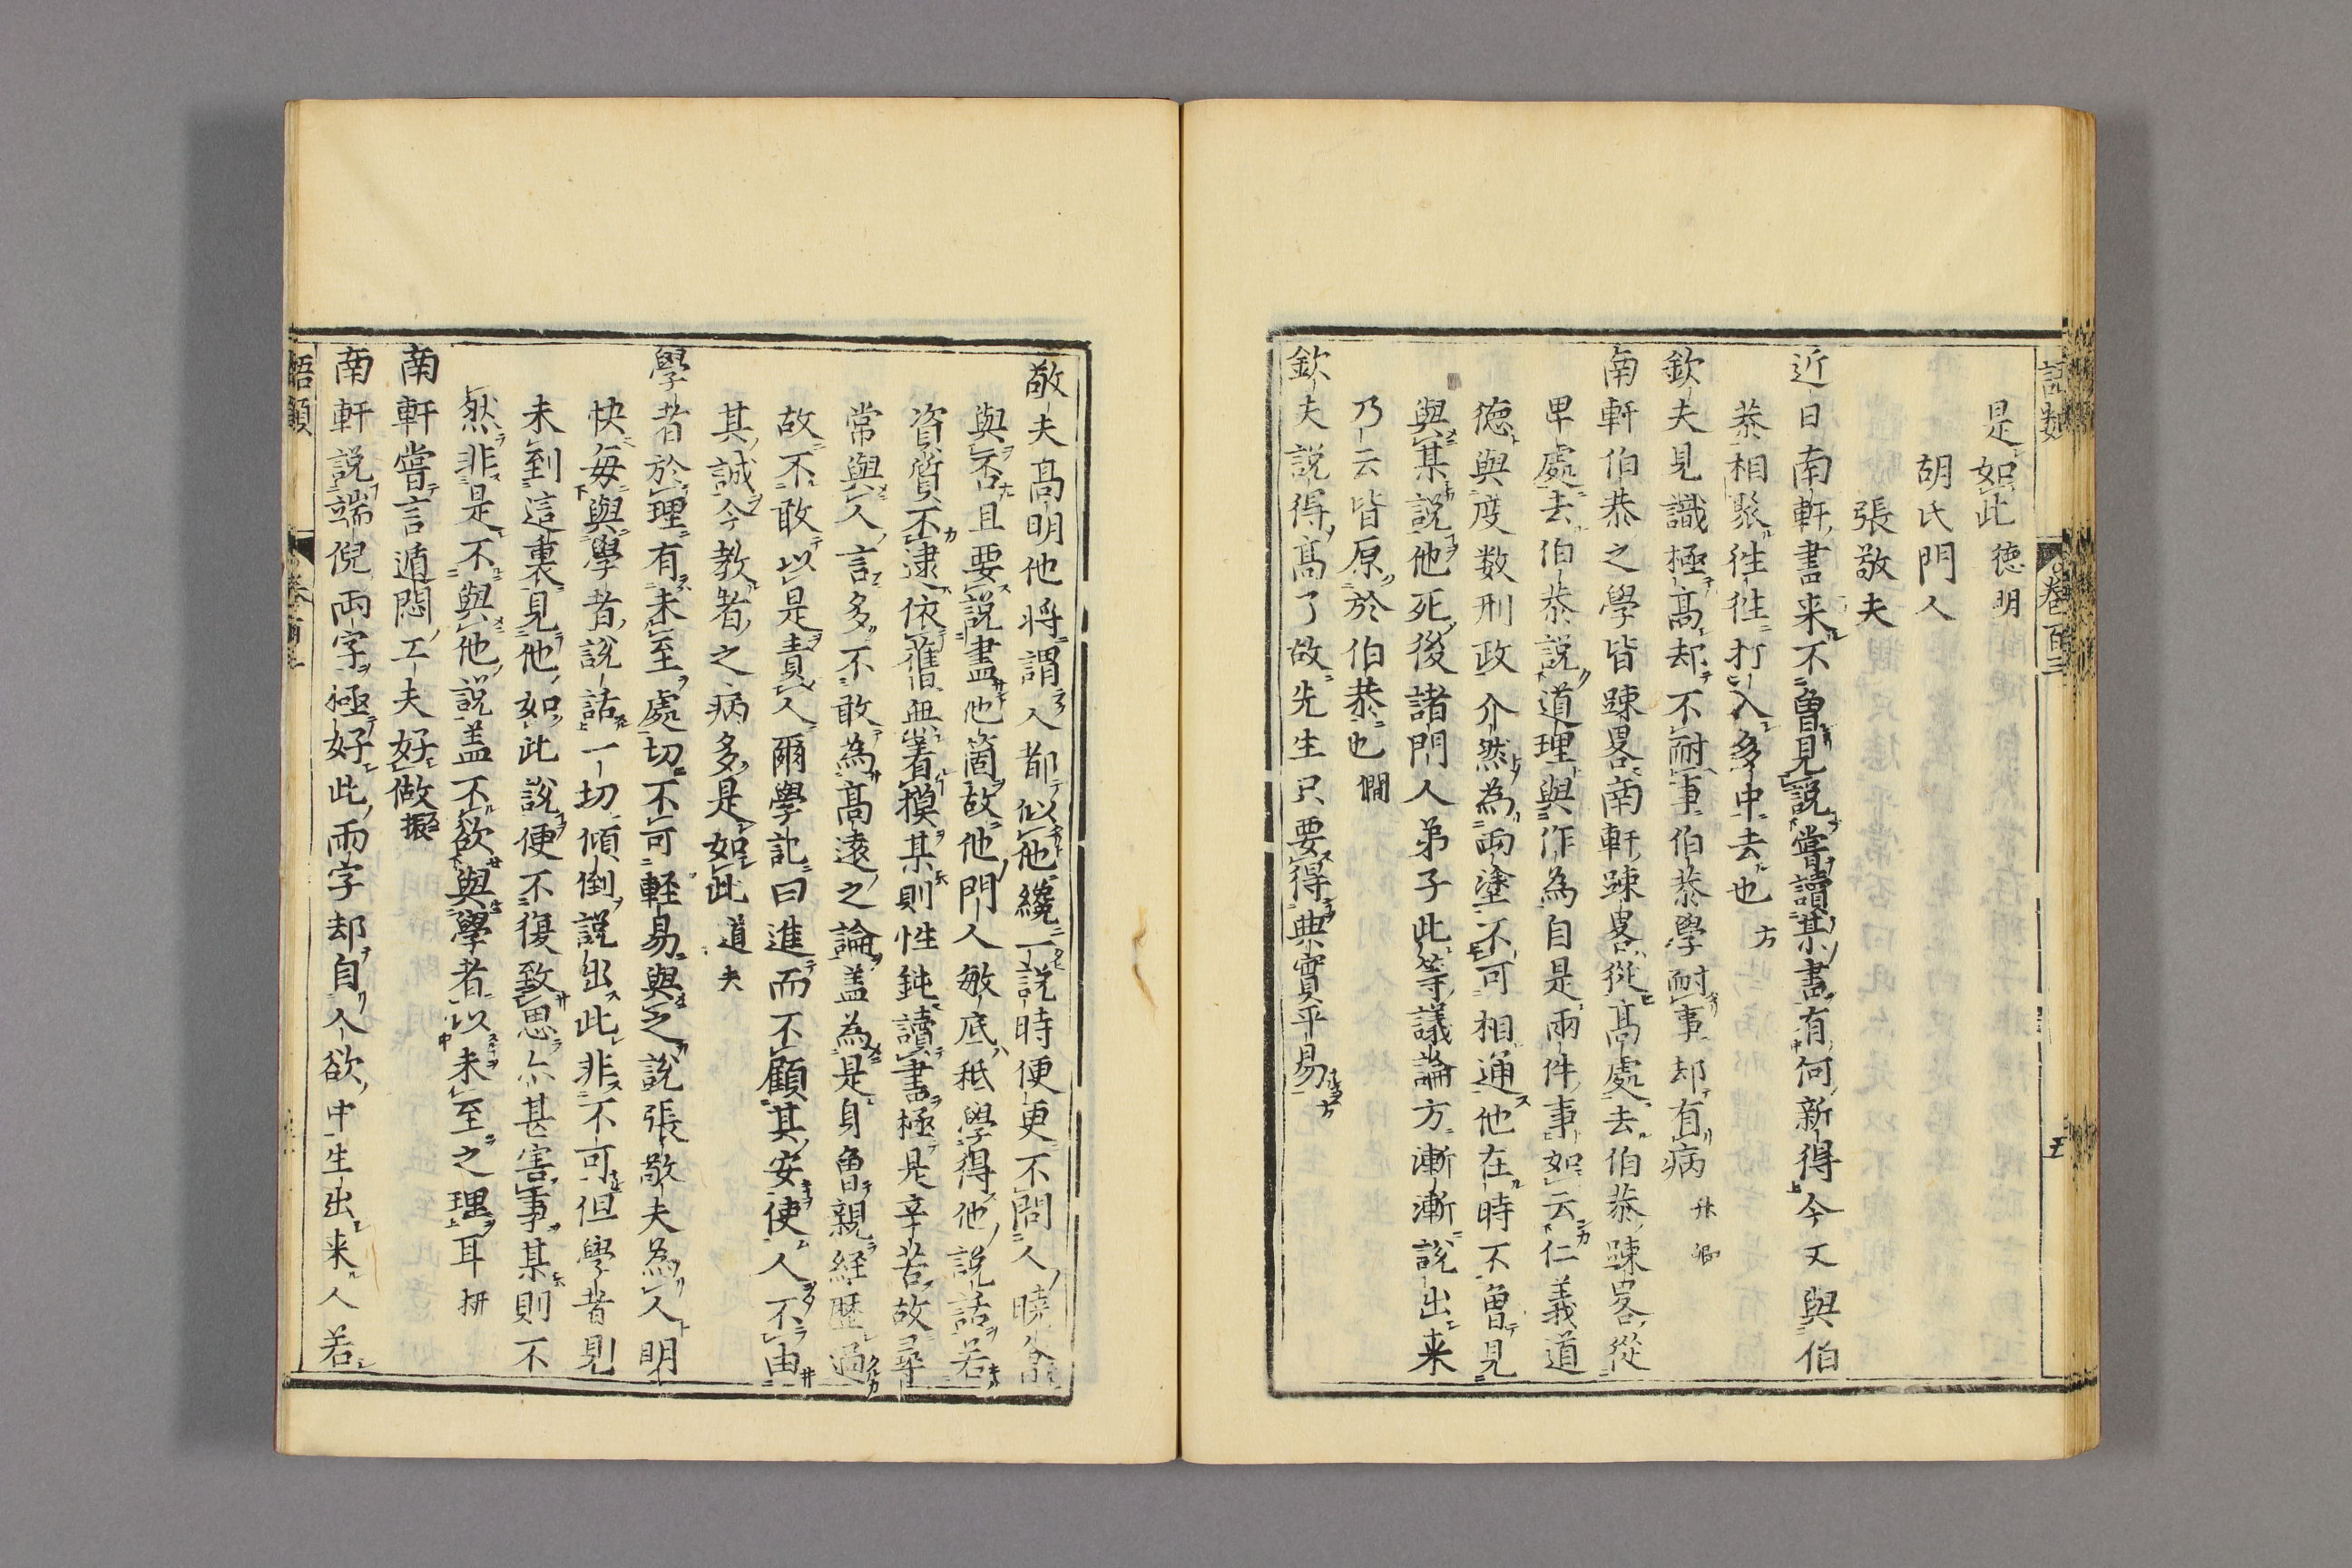 語類 卷百三 五
是如此 德明
胡氏門人
張敬夫
近日南軒書来不曽見說嘗讀某書有何新得今又與伯
恭相聚徃徃打入多中去也 方
欽夫見識極髙却不耐事伯恭學耐事却有病 升卿
南軒伯恭之學皆踈畧南軒踈畧從髙處去伯恭踈畧從
卑處去伯恭說道理與作為自是兩件事如云仁義道
德與度数刑政介然為兩塗不可相通他在時不曽見
與某說他死後諸門人弟子此等議論方漸漸說出来
乃云皆原於伯恭也 僩
欽夫說得髙了故先生只要得典實平易 方
敬夫髙明他將謂人都似他纔一說時便更不問人曉會
與否且要說盡他箇故他門人敏底秖學得他說話若
資質不逮依舊無着摸某則性鈍讀書極是辛苦故尋
常與人言多不敢為髙遠之論盖為是身曽親経歴過
故不敢以是責人爾學記曰進而不顧其安使人不由
其誠今教者之病多是如此 道夫
學者於理有未至處切不可輕易與之說張敬夫為人明
快每與學者說話一切傾倒說出此非不可但學者見
未到這裏見他如此說便不復致思亦甚害事某則不
然非是不與他說盖不欲與學者以未至之理耳 㭿
南軒嘗言遁悶工夫好做 振
南軒說端倪兩字極好此兩字却自人欲中生出来人若
語類 卷百三